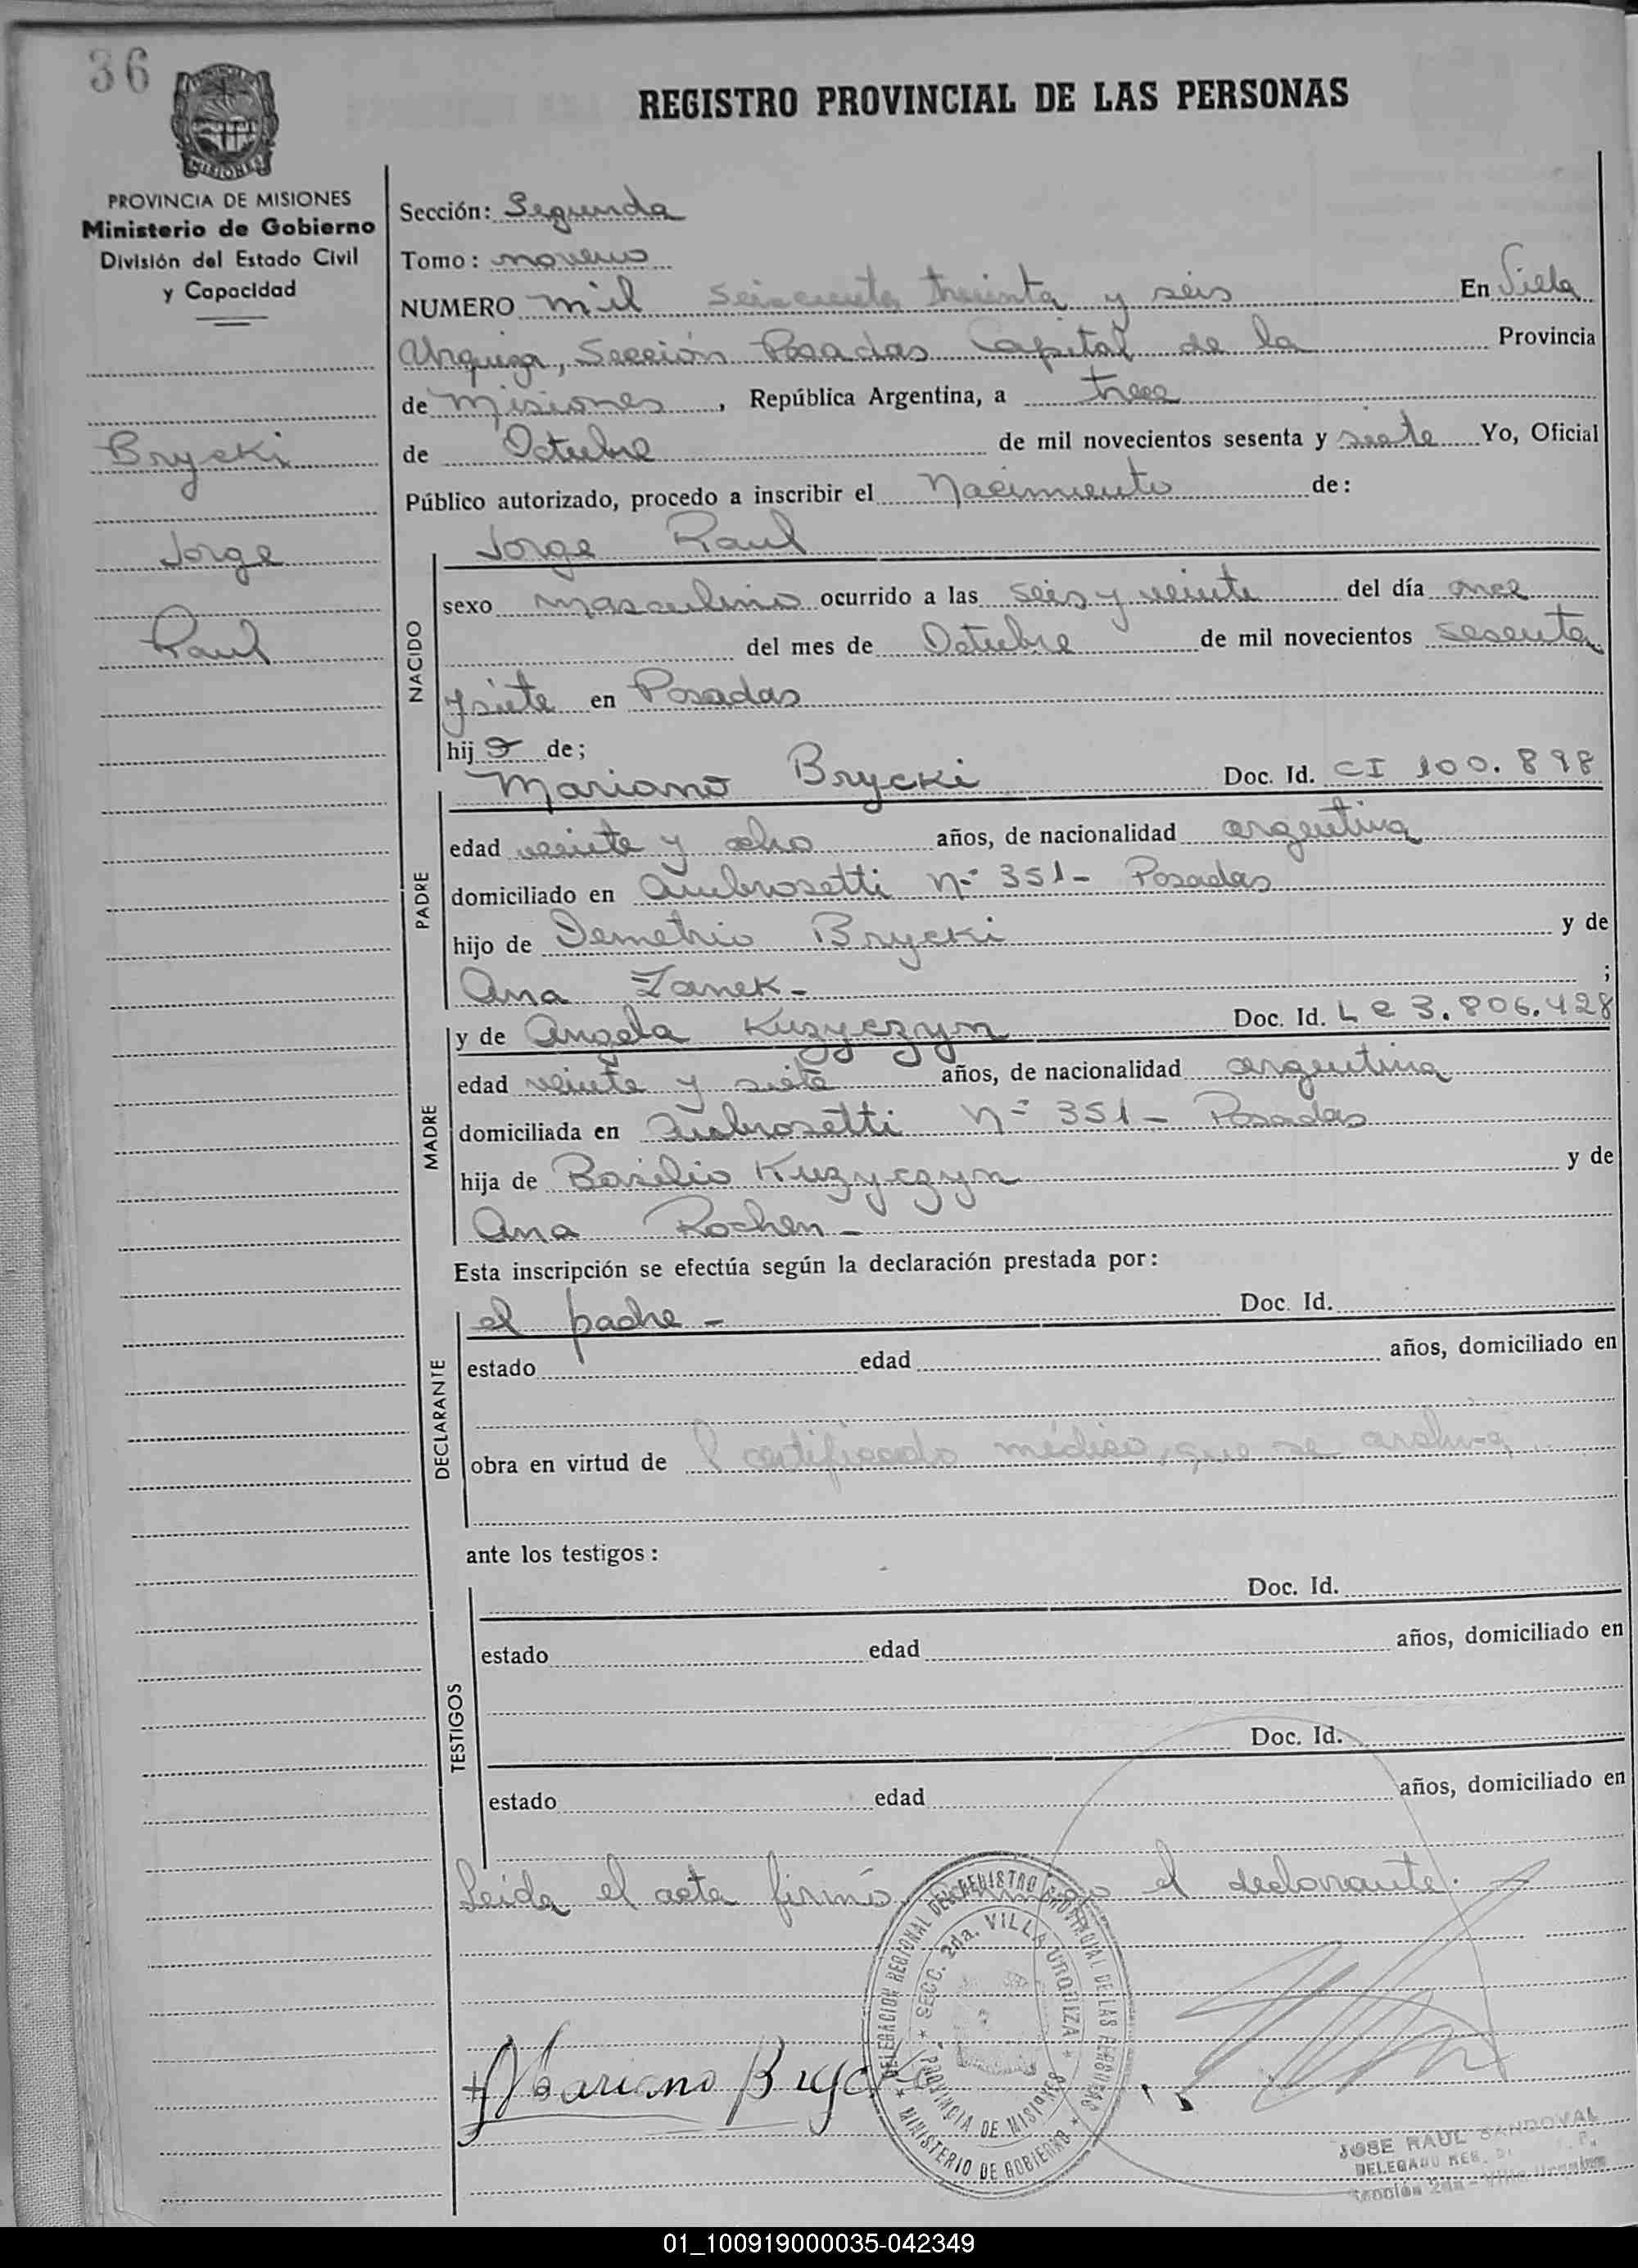 36
MISIONES
PROVINCIA DE MISIONES
Ministerio de Gobierno
División del Estado Civil
y Capacidad
Brycki
Jorge
Raul
REGISTRO PROVINCIAL DE LAS PERSONAS
Sección: Segunda
Tomo: noveno
NUMERO mil seiscientos treinta y seis En Villa
Urquiza, Sección Posadas Capital de la Provincia
de Misiones, República Argentina, a trece
de Octubre de mil novecientos sesenta y siete Yo, Oficial
Público autorizado, procedo a inscribir el Nacimiento de:
Jorge Raul
NACIDO
sexo masculino ocurrido a las seis y veinte del día once
del mes de Octubre de mil novecientos sesenta
y siete en Posadas
hijo de;
PADRE
Mariano Brycki Doc. Id. CI 100.898
edad veinte y ocho años, de nacionalidad argentina
domiciliado en Ambrosetti Nº 351- Posadas
hijo de Demetrio Brycki y de
Ana Zanek- ;
MADRE
y de Angela Kuzyczyn Doc. Id. L C 3.806.428
edad veinte y siete años, de nacionalidad argentina
domiciliada en Ambrosetti Nº 351- Posadas
hija de Basilio Kuzyczyn y de
Ana Rochen-
Esta inscripción se efectúa según la declaración prestada por:
DECLARANTE
el padre- Doc. Id.
estado edad años, domiciliado en
obra en virtud de l certificado médico, que se archiva
ante los testigos:
TESTIGOS
Doc. Id.
estado edad años, domiciliado en
Doc. Id.
estado edad años, domiciliado en
Leida el acta firmó conmigo el declarante.
DELEGACION REGIONAL DEL REGISTRO PROVINCIAL DE LAS PERSONAS
SECC. 2da. VILLA URQUIZA
PROVINCIA DE MISIONES
MINISTERIO DE GOBIERNO
Mariano Brycki
JOSE RAUL SANDOVAL
DELEGADO REG.
Sección 2da - Villa Urquiza
01_100919000035-042349